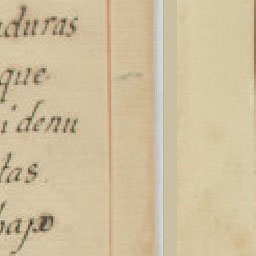 duras
que
i denu
tas
baxo